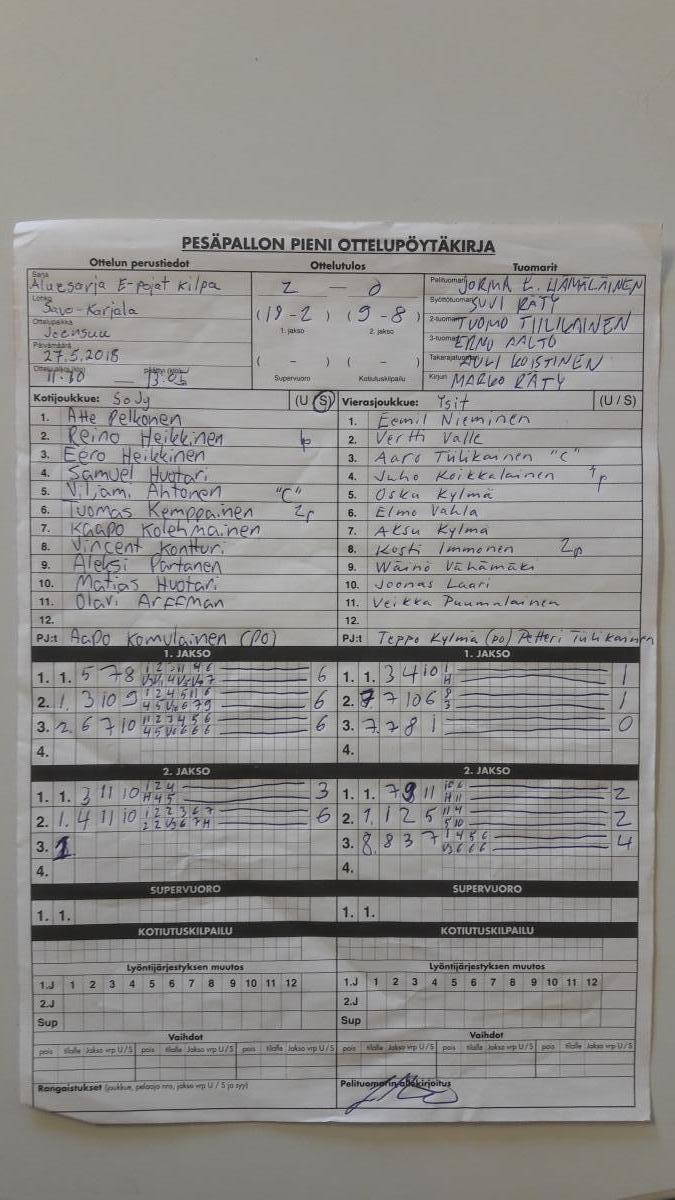 PESÄPALLON PIENI OTTELUPÖYTÄKIRJA
Ottelun perustiedot Ottelutulos Tuomarit
Sarja
Aluesarja E-pojat kilpa
Lohko
Savo-Karjala
Ottelupaikka
Joensuu
Päivämäärä
27.5.2018
11.30 — 13.05
2 — 0
(18-2) (9-8)
1. jakso 2. jakso
( - ) ( - )
Supervuoro Kotiutuskilpailu
Pelituomari JORMA E. HÄMÄLÄINEN
Syöttötuomari SUVI RÄTY
2-tuomari TUOMO TIILIKAINEN
3-tuomari ERNO AALTO
Takarajatuomari AULI KOISTINEN
Kirjuri MARKO RÄTY
Kotijoukkue: SoJy (U/S)
1. Atte Pelkonen
2. Reino Heikkinen 1p
3. Eero Heikkinen
4. Samuel Huotari
5. Viljami Ahtonen "C"
6. Tuomas Kemppainen 2p
7. Kaapo Kolehmainen
8. Vincent Kontturi
9. Aleksi Partanen
10. Matias Huotari
11. Olavi Arffman
12.
PJ:t Aapo Komulainen (PO)
Vierasjoukkue: Ysit (U / S)
1. Eemil Nieminen
2. Vertti Valle
3. Aaro Tiilikainen "C"
4. Juho Koikkalainen 1p
5. Osku Kylmä
6. Elmo Vahla
7. Aksu Kylmä
8. Kosti Immonen 2p
9. Wäinö Vähämäki
10. Joonas Laari
11. Veikka Puumalainen
12.
PJ:t Teppo Kylmä (po) Petteri Tiilikainen
1. JAKSO
1. 1. 5 7 8 6
2. 1. 3 10 9 6
3. 2. 6 7 10 6
4.
1. JAKSO
1. 1. 3 4 10 1
2. 7. 7 10 6 1
3. 7. 7 8 1 0
4.
2. JAKSO
1. 1. 3 11 10 3
2. 1. 4 11 10 6
3. 1
4.
2. JAKSO
1. 1. 7 9 11 2
2. 1. 1 2 5 2
3. 8. 8 3 7 4
4.
SUPERVUORO SUPERVUORO
1. 1. 1. 1.
KOTIUTUSKILPAILU KOTIUTUSKILPAILU
Lyöntijärjestyksen muutos Lyöntijärjestyksen muutos
1.J 1 2 3 4 5 6 7 8 9 10 11 12 1.J 1 2 3 4 5 6 7 8 9 10 11 12
2.J 2.J
Sup Sup
Vaihdot Vaihdot
pois tilalle Jakso vrp U/S pois tilalle Jakso vrp U/S pois tilalle Jakso vrp U/S pois tilalle Jakso vrp U/S pois tilalle Jakso vrp U/S pois tilalle Jakso vrp U/S
Rangaistukset (joukkue, pelaaja nro, jakso vrp U / S ja syy) Pelituomarin allekirjoitus